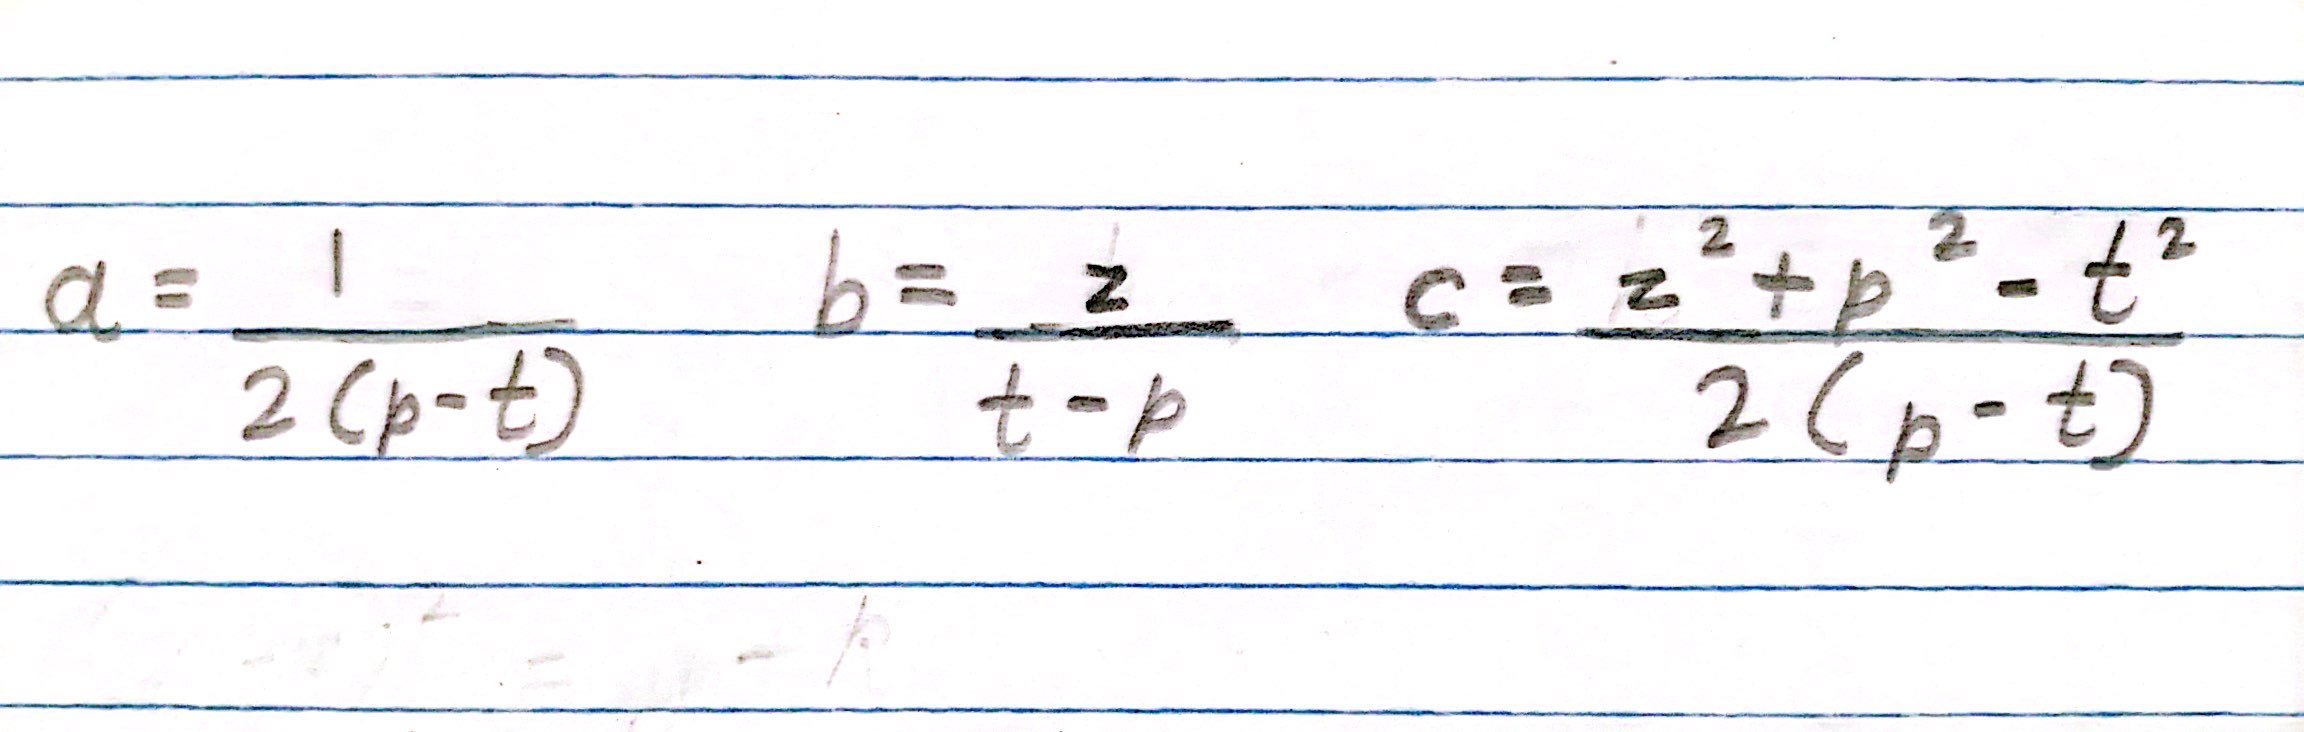 a = 1/2(p-t) b = z/t-p c = z²+p²-t²/2(p-t)